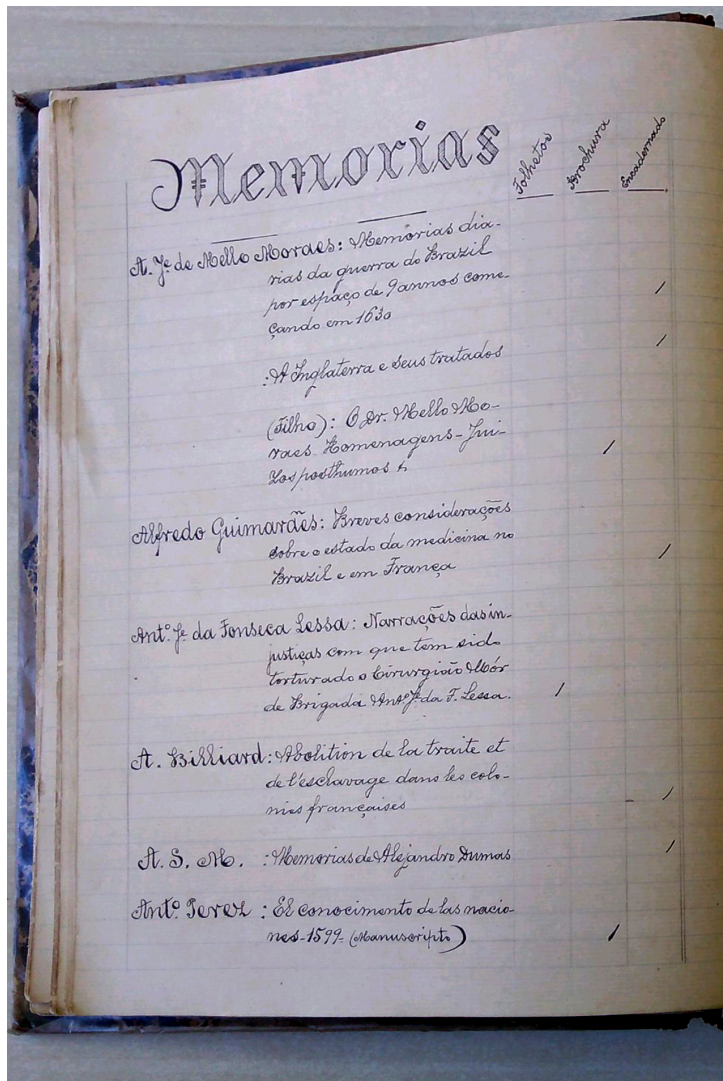 Memorias
Folhetos
Brochura
Encadernado
A. Jº de Mello Moraes: Memorias dia-
rias da guerra do Brazil
por espaço de 9 annos come-
çando em 1630
/
: A Inglaterra e seus tratados
/
(Filho): O Dr. Mello Mo-
raes Homenagens - Jui-
zos posthumos &
/
Alfredo Guimarães: Breves considerações
sobre o estado da medicina no
Brazil e em França
/
Antº Jº da Fonseca Lessa: Narrações das in-
justiças com que tem sido
torturado o Cirurgião Mór
de Brigada Antº Jº da F. Lessa.
/
A. Billiard: Abolition de la traite et
de l'esclavage dans les colo-
nies françaises
/
A. S. M. : Memorias de Alejandro Dumas
/
Antº Perez : El conocimento de las nacio-
nes - 1599 - (Manuscripto)
/